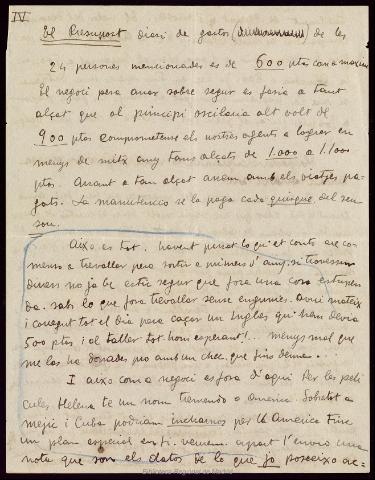 IV
El Presupost diari de gastos de les
24 persones mencionades es de 600 pts com a maxim
El negoci pera anar sobre segur es faria a tant
alçat que al principi oscilaria alt volt de
900 ptas comprometense els nostres agents a lograr en
menys de mitx any tans alçats de 1.000 a 1.100
ptas Anant a tan alçat anem amb els viatjes pa-
gats. La manutenció se la paga cada quisque del seu
sou.
Aixo es tot. havent pues lo qu'et conto co-
menso a trevallar pera sortir a primers d'any. si trovessim
diners no ja be estic segur que fora una cosa estupen
da. sabs lo que fora trevallar sense engunies. avui mateix
i corregut tot el dia pera caçar un Ingles qu'hem devia
500 pts i al taller tot hom esperant!... menys mal que
me las ha donades pro amb un chec que fins dema.
I aixo com a negoci es fora d'aqui Per les peli
cules Helena te un nom tremendo a America. Sobretot a
Mejic i Cuba podriam incharnos per la America Fine
un plan especial en fi. veurem. apart t'envio una
nota que son els datos de lo que jo posseixo ac-
Biblioteca Regional de Madrid